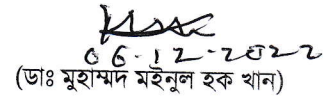 06-12-2022
(ডাঃ মুহাম্মদ মইনুল হক খান)